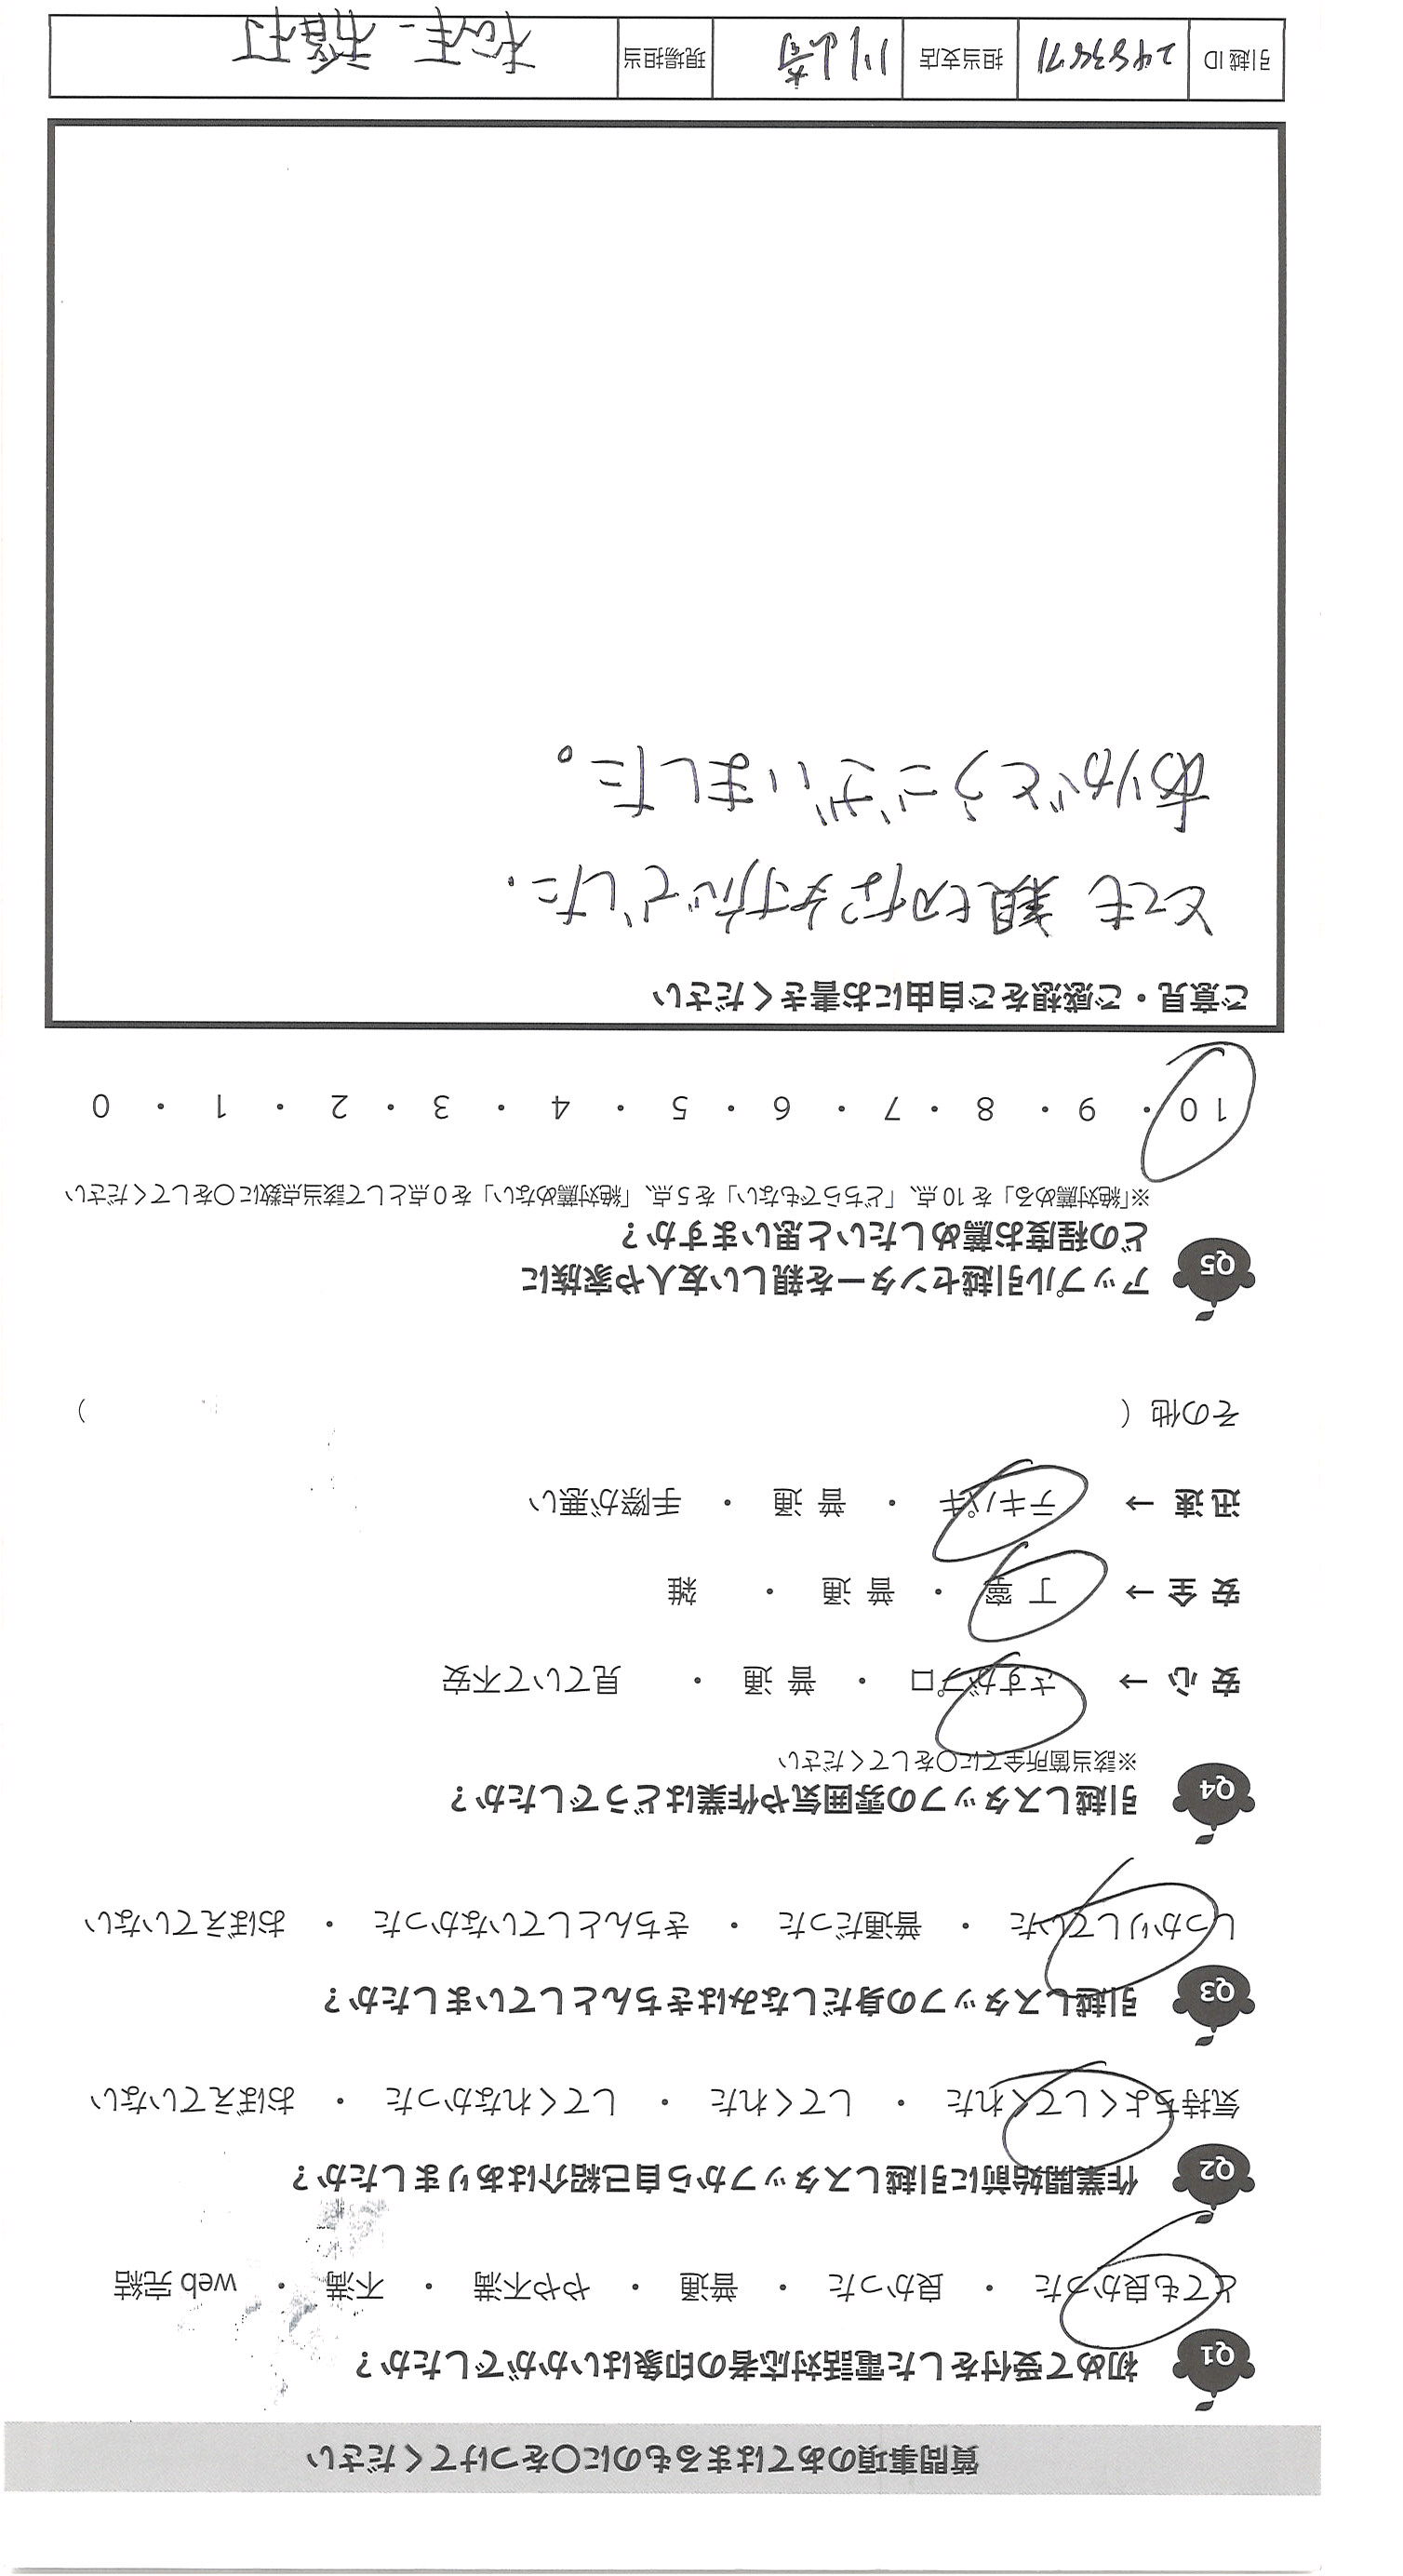 質問事項のあてはまるものに〇をつけてください
Q1 初めて受付をした電話対応者の印象はいかがでしたか？
とても良かった ・ 良かった ・ 普通 ・ やや不満 ・ 不満 ・ web 完結
Q2 作業開始前に引越しスタッフから自己紹介はありましたか？
気持ちよくしてくれた ・ してくれた ・ してくれなかった ・ おぼえていない
Q3 引越しスタッフの身だしなみはきちんとしていましたか？
しっかりしていた ・ 普通だった ・ きちんとしていなかった ・ おぼえていない
Q4 引越しスタッフの雰囲気や作業はどうでしたか？
※該当箇所全てに〇をしてください
安 心 → さすがプロ ・ 普 通 ・ 見ていて不安
安 全 → 丁 寧 ・ 普 通 ・ 雑
迅 速 → テキパキ ・ 普 通 ・ 手際が悪い
その他（ ）
Q5 アップル引越センターを親しい友人や家族に
どの程度お薦めしたいと思いますか？
※「絶対薦める」を 10 点、「どちらでもない」を 5 点、「絶対薦めない」を 0 点として該当点数に〇をしてください
10 ・ 9 ・ 8 ・ 7 ・ 6 ・ 5 ・ 4 ・ 3 ・ 2 ・ 1 ・ 0
ご意見・ご感想をご自由にお書きください
とても 親切な方でした.
ありがとうございました。
引越 ID 担当支店 川崎 現場担当